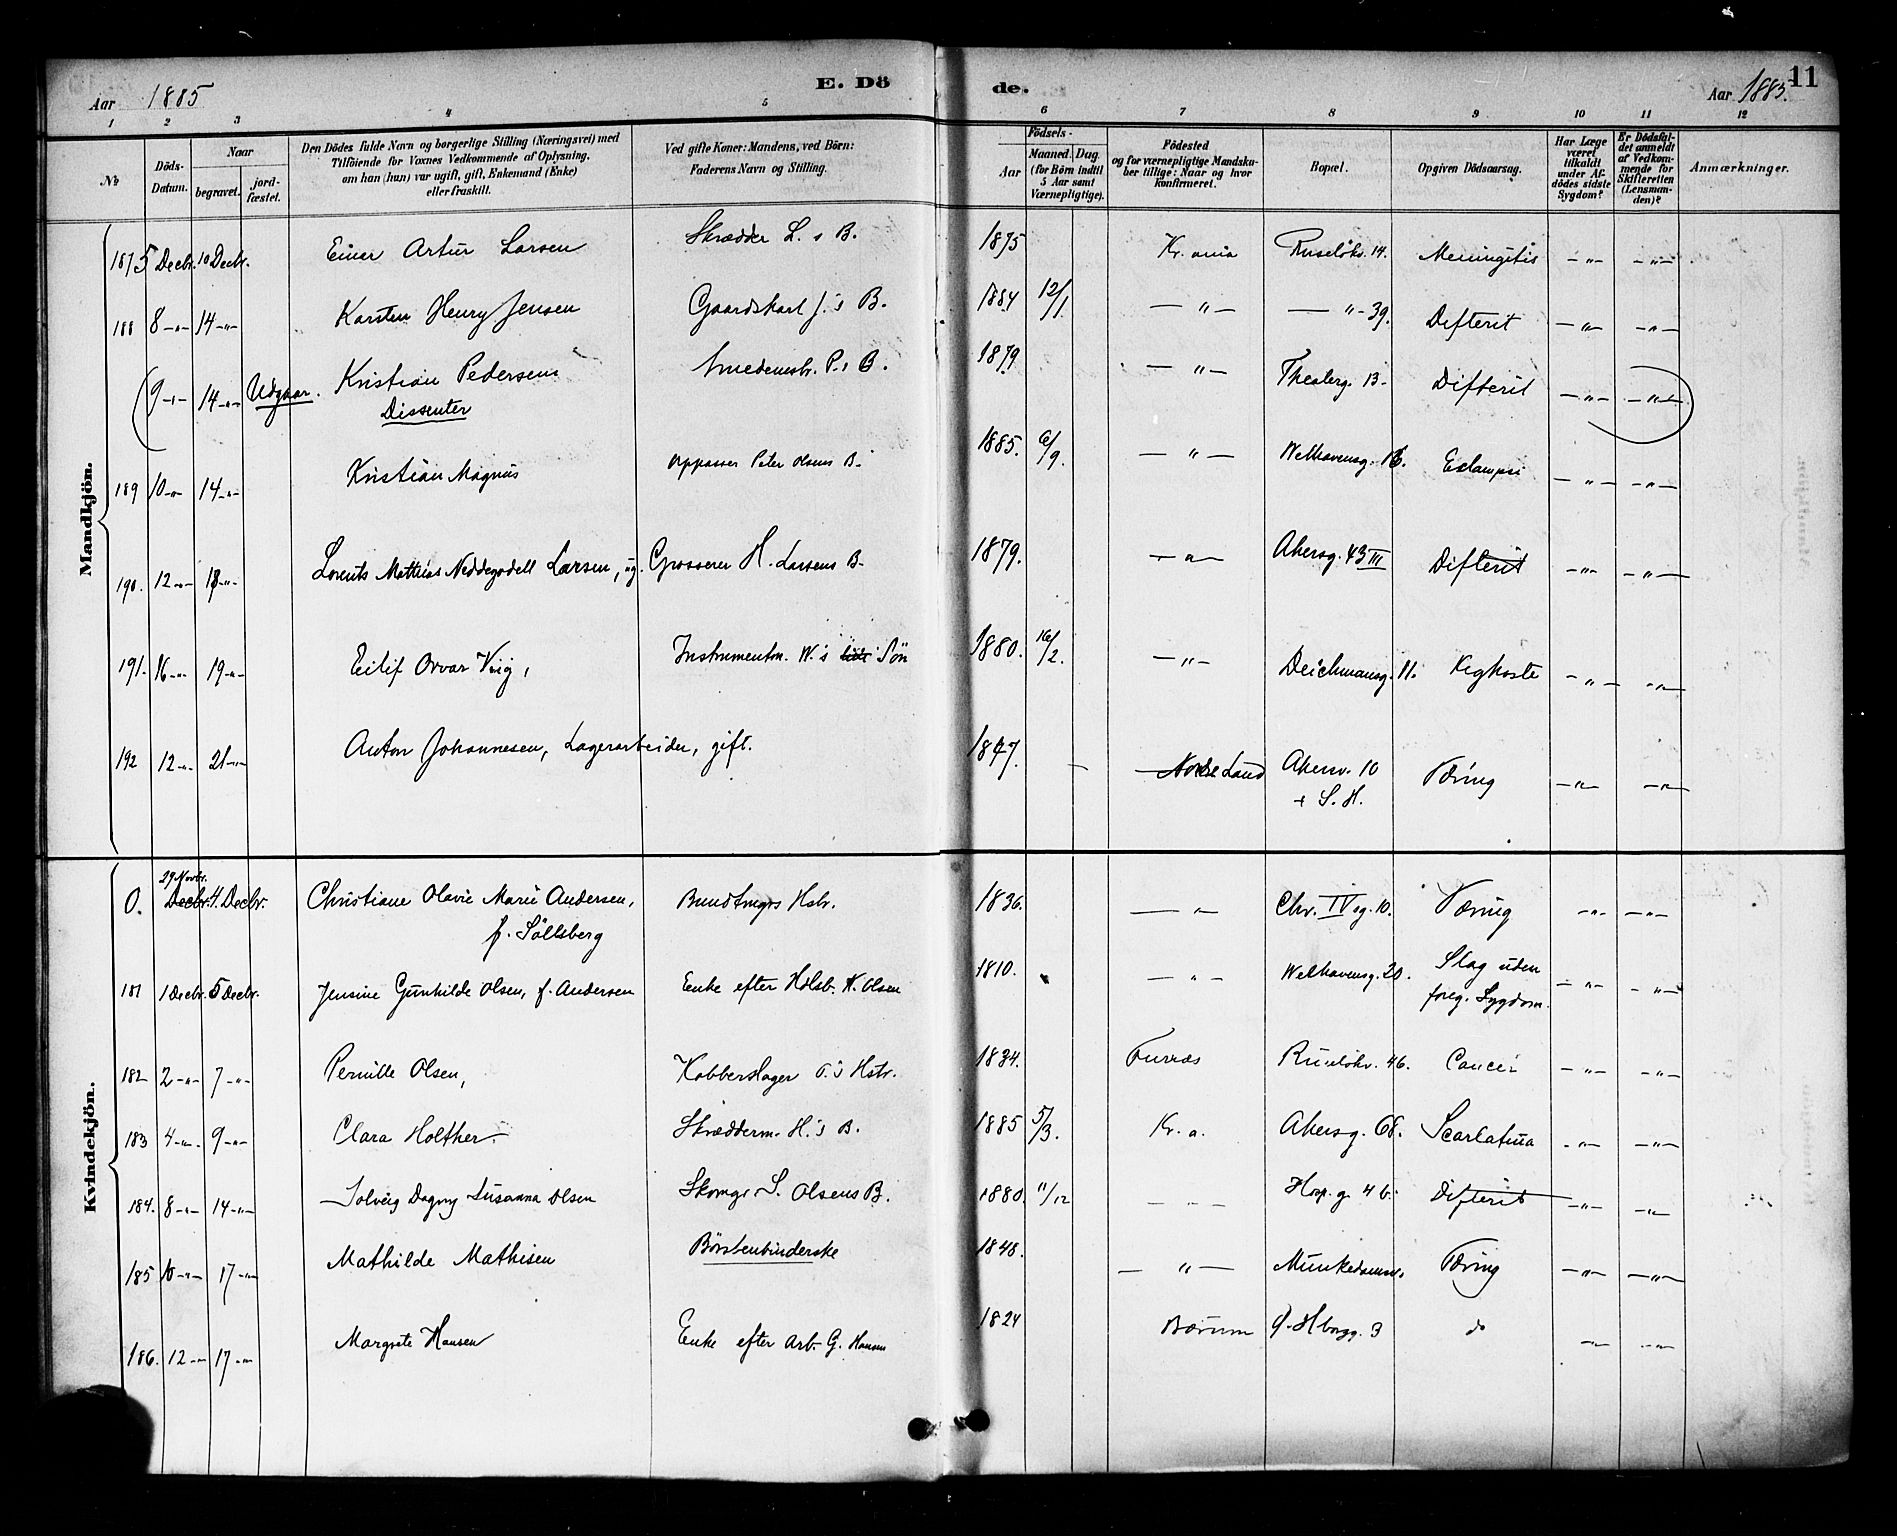 Aar 1885
E. Dö
de.
Aar 1885.
11
1 2 3 4 5 6 7 8 9 10 11 12
№
Döds-
Datum.
Naar
begravet.
jord-
fæstet.
Den Dödes fulde Navn og borgerlige Stilling (Næringsvei) med
Tilföiende for Voxnes Vedkommende af Oplysning,
om han (hun) var ugift, gift, Enkemand (Enke)
eller fraskilt.
Ved gifte Koner: Mandens, ved Börn:
Faderens Navn og Stilling.
Födsels-
Aar
Maaned. Dag.
(for Börn indtil
5 Aar samt
Værnepligtige).
Födested
og for værnepligtige Mandsku-
ber tillige: Naar og hvor
konfirmeret.
Bopæl.
Opgiven Dödsaarsag.
Har Læge
været
tilkaldt
under Af-
dödes sidste
Sygdom?
Er Dödsfal-
det anmeldt
af Vedkom-
mende for
Skifteretten
(Lensman-
den)?
Anmærkninger.
Mandkjön.
187 5 Decbr. 10 Decbr. Einar Artur Larsen Skrædder L.s B. 1875 Kr.ania Ruselökv. 14. Meningitis -"- -"-
188 8 -"- 14 -"- Karsten Henry Jensen Gaardskarl J.'s B. 1884 12/1 -"- -"- 39. Difterit -"- -"-
9 -"- 14 -"- Udgaar. Kristian Pedersen Smedemstr. P.s B. 1879 -"- Theaterg. 13. Difterit -"- -"-
Dissenter
189 10 -"- 14 -"- Kristian Magnus Oppasser Peter Olsens B. 1885. 6/9. -"- Welhavensg. 16. Eclampsi -"- -"-
190. 12 -"- 18 -"- Lorents Mathias Neddegodell Larsen, ug. Grosserer H. Larsens B. 1879. -"- Akersg. 43 III Difterit -"- -"-
191. 16 -"- 19 -"- Eilif Orvar Viig, Instrumentm. W.'s Sön 1880. 16/2. -"- Deichmansg. 11. Kighoste -"- -"-
192 12 -"- 21 -"- Anton Johannesen, Lagerarbeider, gift. 1847. Nordre Land Akersv. 10 Tæring -"- -"-
+ S. H.
Kvindekjön.
29 Novbr.
0. Decbr. 4 Decbr. Christiane Olavie Marie Andersen, Bundtmgrs Hstr. 1836. -"- Chr. IV sg. 10. Tæring -"- -"-
f. Söllsberg
181 1 Decbr. 5 Decbr. Jensine Gunhilde Olsen, f. Andersen Enke efter Hdlsb. K. Olsen 1810. -"- Welhavensg. 20. Slag uden -"- -"-
foreg. Sygdom.
182 2 -"- 7 -"- Pernille Olsen, Kobberslager O.'s Hstr. 1834. Furnæs Ruselökv. 46. Cancer -"- -"-
183 4 -"- 9 -"- Clara Holther Skrædderm. H.'s B. 1885 5/3. Kr.a. Akersg. 68. Scarlatina -"- -"-
184. 8 -"- 14 -"- Solveig Dagny Susanna Olsen Skomgr S. Olsens B. 1880. 11/12 - - - Hosp. g. 4 b. Difterit -"- -"-
185 10 -"- 17 -"- Mathilde Mathisen Börstenbinderske 1848. -"- Munkedamsv. Tæring -"- -"-
186. 12 -"- 17 -"- Margrete Hansen Enke efter Arb. G. Hansen 1824 Bærum do -"- -"-